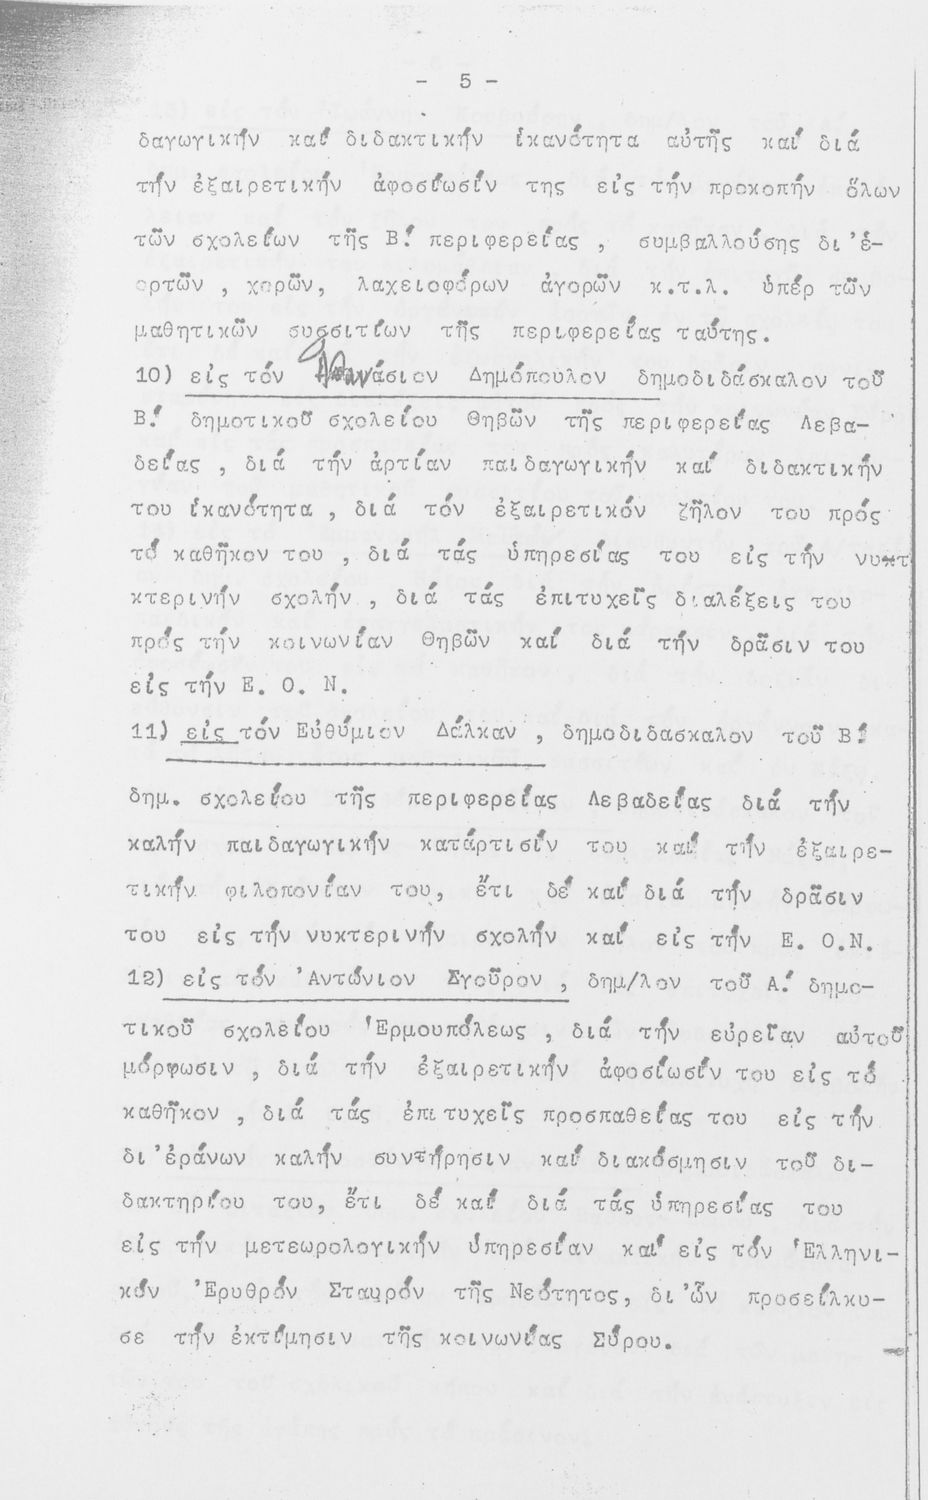 - 5 -
δαγωγικήν καί διδακτικήν ἱκανότητα αὐτῆς καί διά
τήν ἐξαιρετικήν ἀφοσίωσίν της εἰς τήν προκοπήν ὅλων
τῶν σχολείων τῆς Β! περιφερείας , συμβαλλούσης δι'ἑ-
ορτῶν , χορῶν, λαχειοφόρων ἀγορῶν κ.τ.λ. ὑπέρ τῶν
μαθητικῶν συσσιτίων τῆς περιφερείας ταύτης.
10) εἰς τόν Ἀθανάσιον Δημόπουλον δημοδιδάσκαλον τοῦ
Β! δημοτικοῦ σχολείου Θηβῶν τῆς περιφερείας Λεβα-
δείας , διά τήν ἀρτίαν παιδαγωγικήν καί διδακτικήν
του ἱκανότητα , διά τόν ἐξαιρετικόν ζῆλον του πρός
τό καθῆκον του , διά τάς ὑπηρεσίας του εἰς τήν νυκτ
κτερινήν σχολήν , διά τάς ἐπιτυχεῖς διαλέξεις του
πρός τήν κοινωνίαν Θηβῶν καί διά τήν δρᾶσιν του
εἰς τήν Ε. Ο. Ν.
11) εἰς τόν Εὐθύμιον Δάλκαν , δημοδιδασκαλον τοῦ Β!
δημ. σχολείου τῆς περιφερείας Λεβαδείας διά τήν
καλήν παιδαγωγικήν κατάρτισίν του καί τήν ἐξαιρε-
τικήν φιλοπονίαν του, ἔτι δέ καί διά τήν δρᾶσιν
του εἰς τήν νυκτερινήν σχολήν καί εἰς τήν Ε. Ο.Ν.
12) εἰς τόν 'Αντώνιον Σγοῦρον , δημ/λον τοῦ Α! δημο-
τικοῦ σχολείου Ἑρμουπόλεως , διά τήν εὐρεῖαν αὐτοῦ
μόρφωσιν , διά τήν ἐξαιρετικήν ἀφοσίωσίν του εἰς τό
καθῆκον , διά τάς ἐπιτυχεῖς προσπαθείας του εἰς τήν
δι'ἐράνων καλήν συντήρησιν καί διακόσμησιν τοῦ δι-
δακτηρίου του, ἔτι δέ καί διά τάς ὑπηρεσίας του
εἰς τήν μετεωρολογικήν ὑπηρεσίαν καί εἰς τόν Ἑλληνι-
κόν 'Ερυθρόν Σταυρόν τῆς Νεότητος, δι'ὧν προσείλκυ-
σε τήν ἐκτίμησιν τῆς κοινωνίας Σύρου.